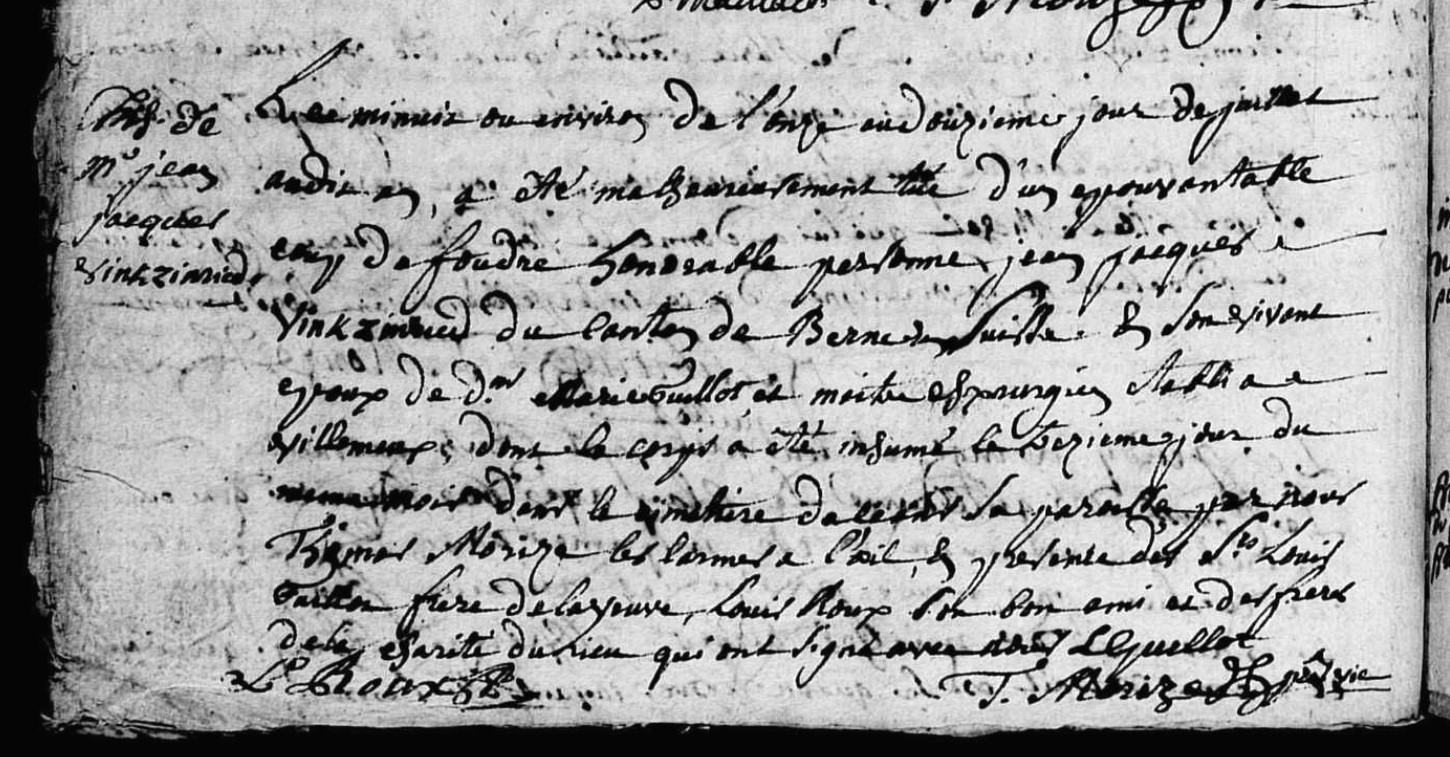 Inh. de
Mr jean
jacques
vinkzinried
Le minuit ou environ de l'onze au douzieme jour de juillet
audit an, a été malheureusement tué d'un epouvantable
coup de foudre honorable personne jean jacques
Vinkzinried du Canton de Berne en Suisse en son vivant
epoux de de Marie Guillot et maitre chirurgien etabli a
villemeux, dont le corps a été inhumé le trezieme jour du
meme mois dans le cimetiere de sa paroisse par nous
Thomas Morize les larmes a l'œil, en presence des Srs Louis
Guillot frere de la veuve, Louis Roux son bon ami et des freres
de la charité du lieu qui ont signé avec nous L Guillot
Ls Roux T. Morize